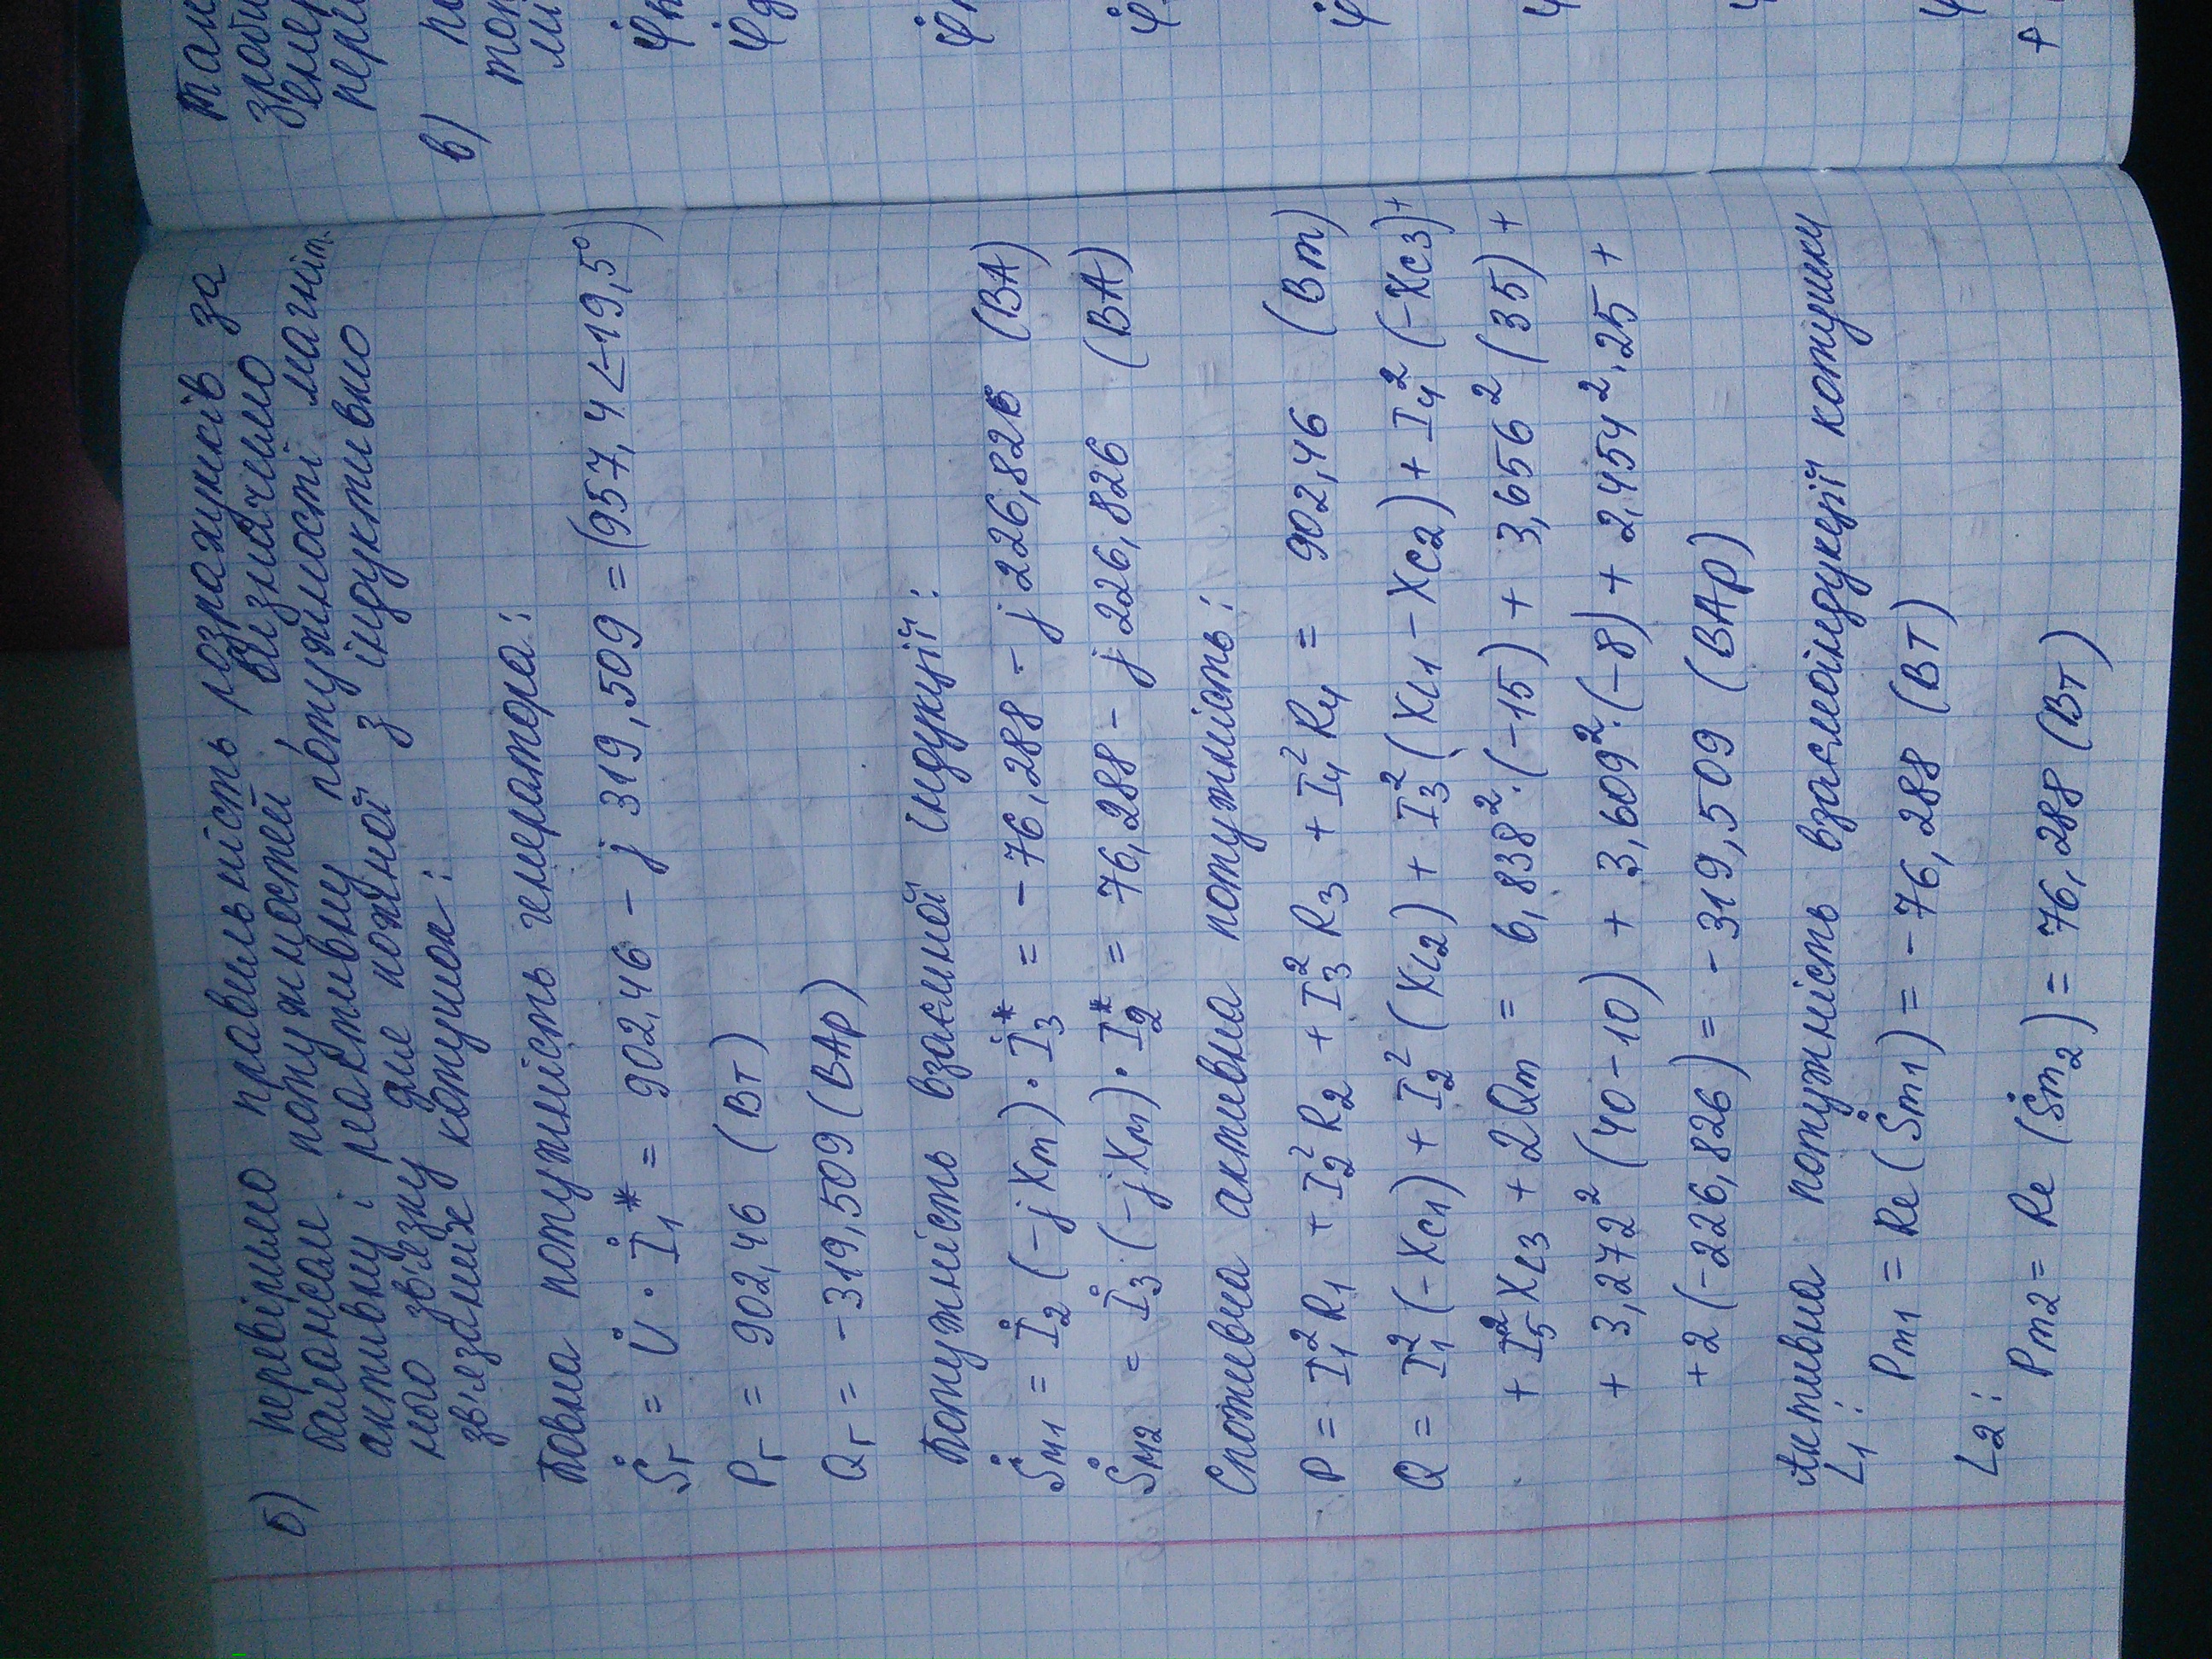 б) перевіримо правильність розрахунків за
балансом потужностей, визначимо
активну і реактивну потужності магніт.
ного зв'язку для кожної з індуктивно
зв'язаних котушок:
Повна потужність генератора:
Ṡг = U̇ · İ₁* = 902,46 - j 319,509 = (957,4∠-19,5°)
Pг = 902,46 (Вт)
Qг = - 319,509 (ВАр)
Потужність взаємної індукції:
Ṡм1 = İ₂ (-jXm) · İ₃* = - 76,288 - j 226,826 (ВА)
Ṡм2 = İ₃ (-jXm) · İ₂* = 76,288 - j 226,826 (ВА)
Споживча активна потужність:
P = I₁²R₁ + I₂²R₂ + I₃²R₃ + I₄²R₄ = 902,46 (Вт)
Q = I₁²(-Xc1) + I₂²(XL2) + I₃²(XL1 - Xc2) + I₄²(-Xc3) +
+ I₅²XL3 + 2Qm = 6,838²·(-15) + 3,656²(35) +
+ 3,272²(40-10) + 3,609²·(-8) + 2,454²·25 +
+ 2(-226,826) = - 319,509 (ВАр)
Активна потужність взаємоіндукції котушки
L₁: Pm1 = Re (Ṡm1) = - 76,288 (Вт)
L₂: Pm2 = Re (Ṡm2) = 76,288 (Вт)
в)